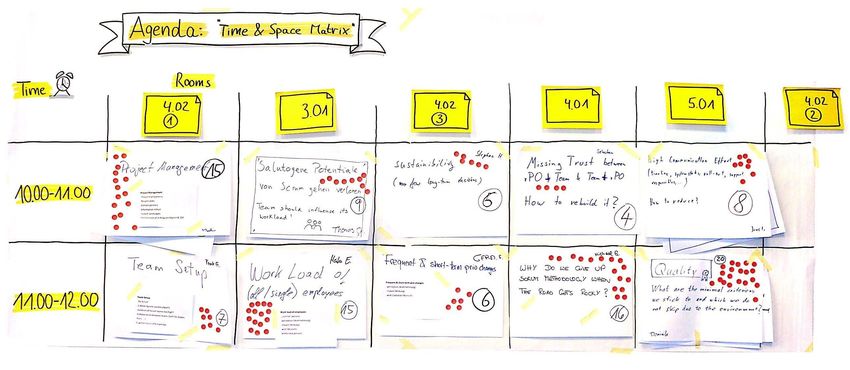 Agenda: "Time & Space Matrix"
Time
Rooms
4.02
1
3.01
4.02
3
4.01
5.01
4.02
2
10.00-11.00
Project Management
15
Project Management
Salutogene Potentiale
von Scrum gehen verloren
9
Team should influence its
workload!
Thomas
Stephan H
Sustainibility
(no few long-term decisions)
5
Missing Trust between
PO & Team & Team & PO
How to rebuild it?
4
High Communication Effort
How to reduce?
8
11.00-12.00
Team Setup
7
Work Load of
(all/single) employees
15
Frequent & short-term prio changes
6
WHY DO WE GIVE UP
SCRUM METHODOLOGY WHEN
THE ROAD GETS ROCKY?
16
Quality
20
What are the minimal criterias
we stick to and which we do
not skip due to the environment
Daniela